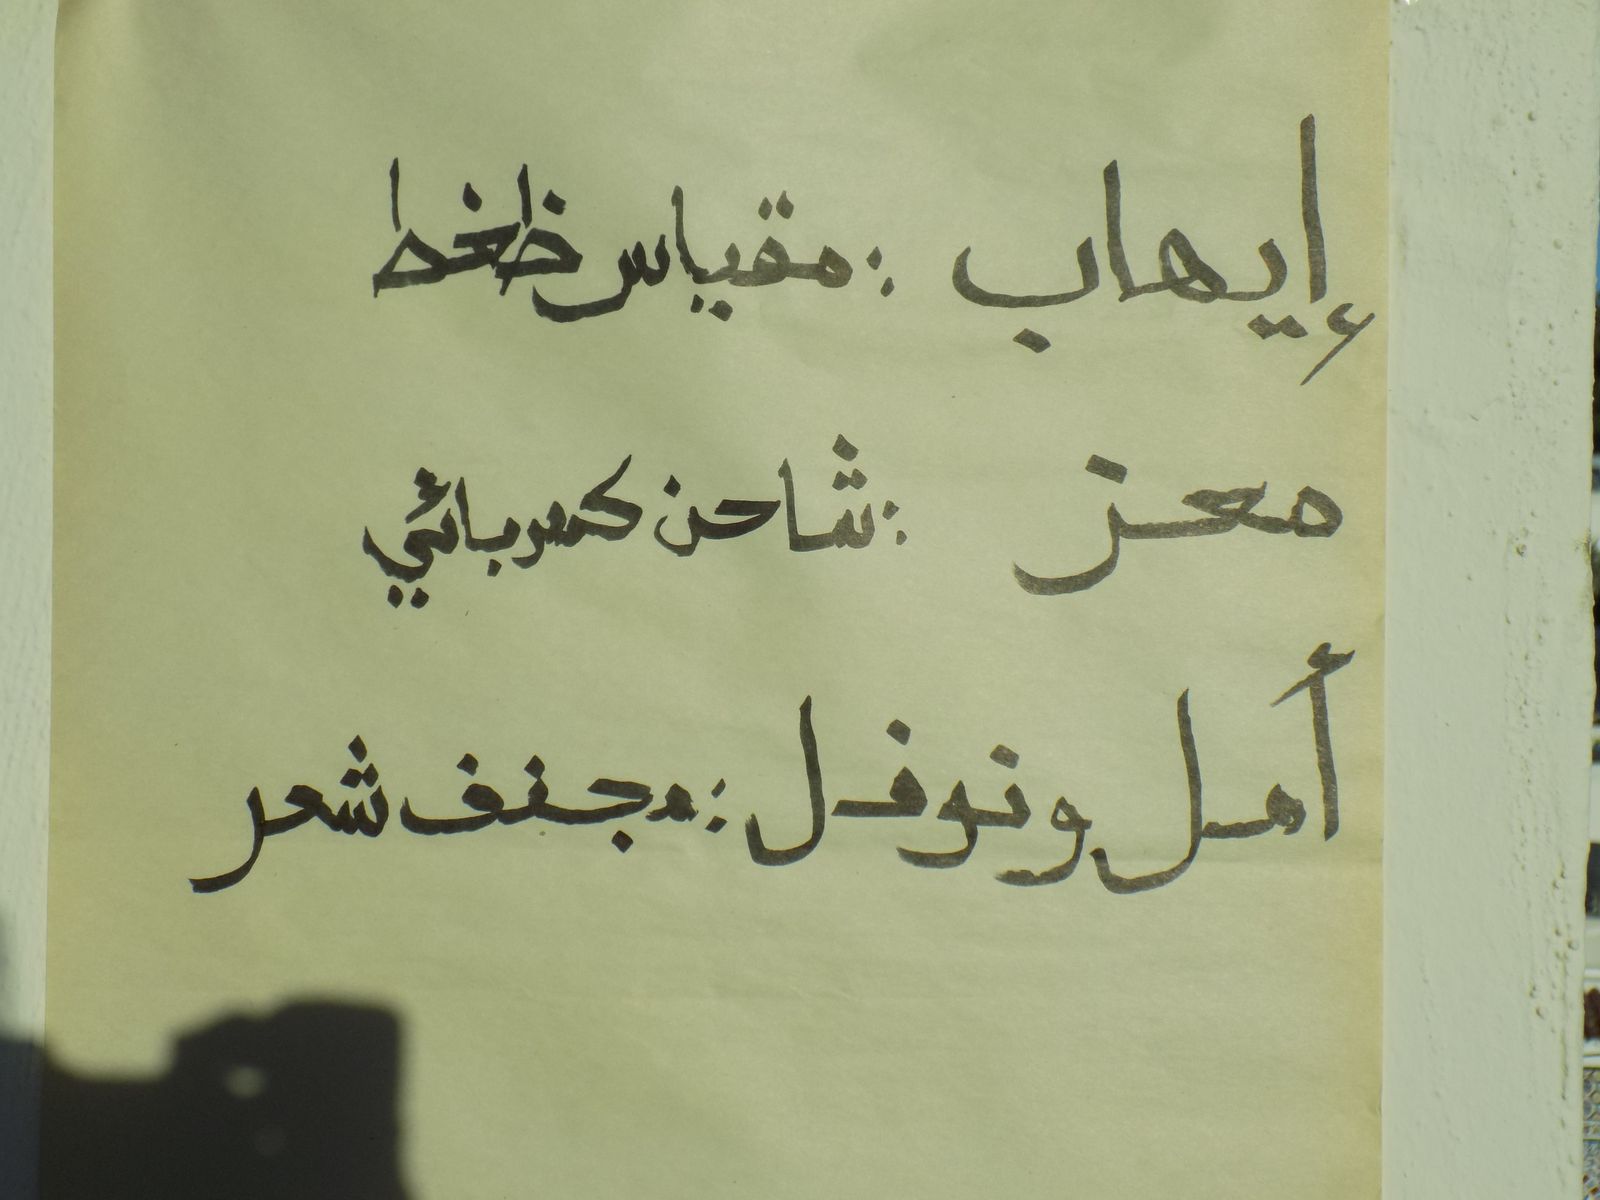 إيهاب : مقياس ظغط
معز : شاحن كهربائي
أمل ونوفل : مجفف شعر